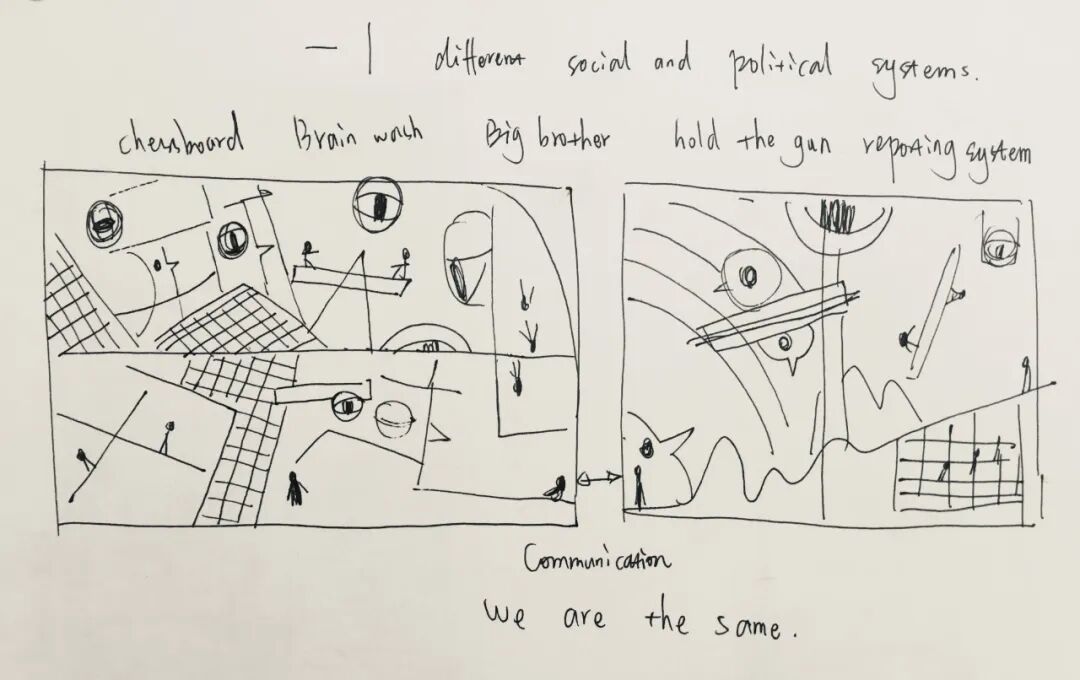 — | different social and political systems.
chessboard Brain wash Big brother hold the gun reporting system
Communication
We are the same.